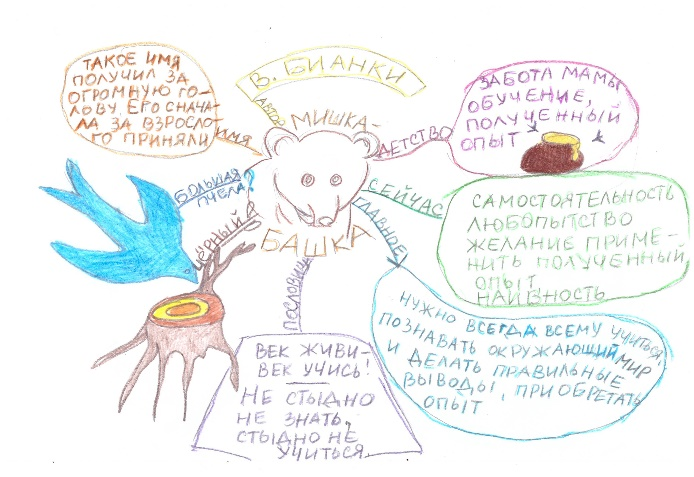 В. БИАНКИ
АВТОР
МИШКА-
БАШКА
ТАКОЕ ИМЯ
ПОЛУЧИЛ ЗА
ОГРОМНУЮ ГО-
ЛОВУ. ЕГО СНАЧА-
ЛА ЗА ВЗРОСЛО-
ГО ПРИНЯЛИ
ИМЯ
ДЕТСТВО
ЗАБОТА МАМЫ
ОБУЧЕНИЕ,
ПОЛУЧЕННЫЙ
ОПЫТ
БОЛЬШАЯ
ПЧЕЛА?
ЧЁРНЫЙ
СЕЙЧАС
САМОСТОЯТЕЛЬНОСТЬ
ЛЮБОПЫТСТВО
ЖЕЛАНИЕ ПРИМЕ-
НИТЬ ПОЛУЧЕННЫЙ
ОПЫТ
НАИВНОСТЬ
ГЛАВНОЕ
НУЖНО ВСЕГДА ВСЕМУ УЧИТЬСЯ,
ПОЗНАВАТЬ ОКРУЖАЮЩИЙ МИР
И ДЕЛАТЬ ПРАВИЛЬНЫЕ
ВЫВОДЫ, ПРИОБРЕТАТЬ
ОПЫТ
ПОСЛОВИЦЫ
ВЕК ЖИВИ-
ВЕК УЧИСЬ!
НЕ СТЫДНО
НЕ ЗНАТЬ,
СТЫДНО НЕ
УЧИТЬСЯ.